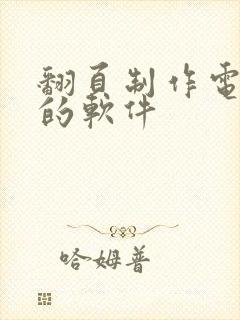 翻頁制作電
的軟件
哈姆普